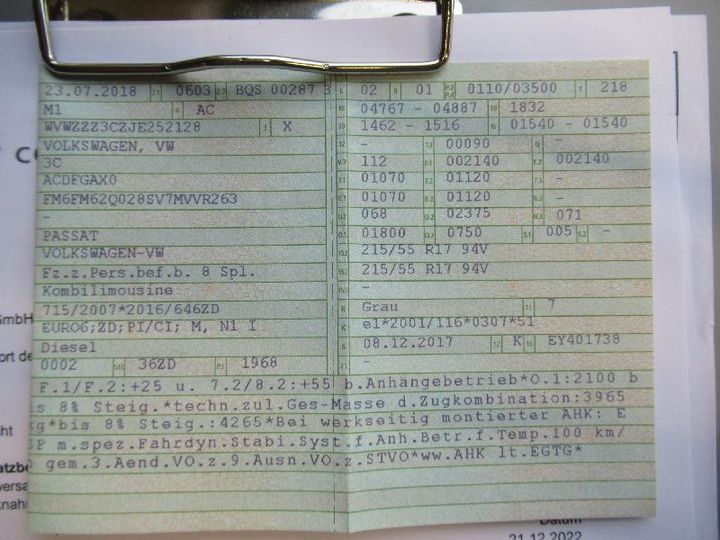 23.07.2018 0603 BQS 00287 3
M1 AC
WVWZZZ3CZJE252128 X
VOLKSWAGEN, VW
3C
ACDFGAX0
FM6FM62Q028SV7MVVR263
-
PASSAT
VOLKSWAGEN-VW
Fz.z.Pers.bef.b. 8 Spl.
Kombilimousine
715/2007*2016/646ZD
EURO6;ZD;PI/CI; M, N1 I
Diesel
0002 36ZD 1968
02 01 0110/03500 218
04767 - 04887 1832
1462 - 1516 01540 - 01540
- 00090 -
112 002140 002140
01070 01120 -
01070 01120 -
068 02375 071
01800 0750 005 -
215/55 R17 94V
215/55 R17 94V
-
Grau 7
e1*2001/116*0307*51
08.12.2017 K EY401738
-
F.1/F.2:+25 u. 7.2/8.2:+55 b.Anhängebetrieb*O.1:2100 b
is 8% Steig.*techn.zul.Ges-Masse d.Zugkombination:3965
kg*bis 8% Steig.:4265*Bei werkseitig montierter AHK: E
SP m.spez.Fahrdyn.Stabi.Syst.f.Anh.Betr.f.Temp.100 km/
gem.3.Aend.VO.z.9.Ausn.VO.z.STVO*ww.AHK lt.EGTG*
GmbH
ort de
cht
atzbe
versa
knahu
Datum
21.12.2022